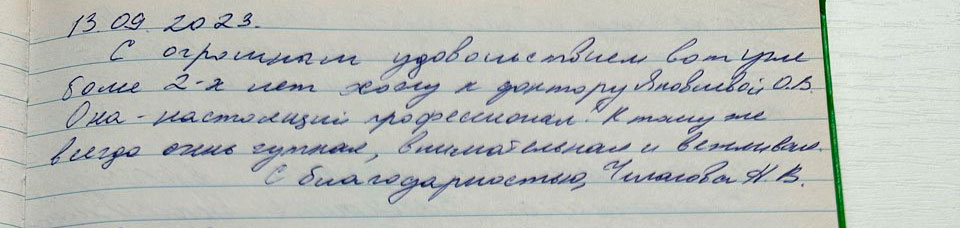 13.09.2023.
С огромным удовольствием вот уже
более 2-х лет хожу к доктору Яковлевой О.В.
Она - настоящий профессионал. К тому же
всегда очень чуткая, внимательная и вежливая.
С благодарностью, Н.В.